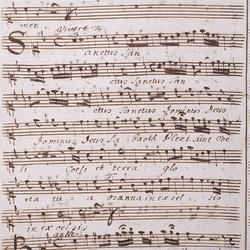 men
S
anctus San
ctus Sanctus San
ctus Sanctus Dominus Deus
Dominus Deus Sa baoth Pleni sunt Coe
li Coeli et terra glo
ria tu a Osanna in excel sis
in excelsis